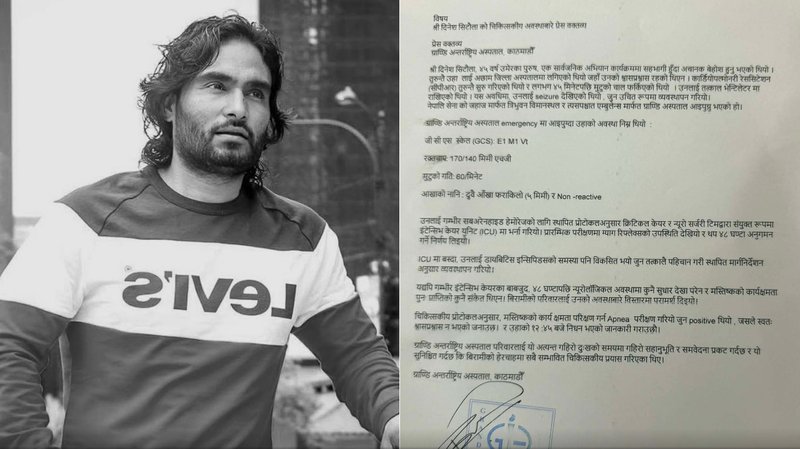 LEVI'S
विषय
श्री दिनेश सिटौला को चिकित्सकीय अवस्थाबारे प्रेस वक्तव्य
प्रेस वक्तव्य
ग्राण्डि अन्तर्राष्ट्रिय अस्पताल, काठमाडौँ
श्री दिनेश सिटौला, ४५ वर्ष उमेरका पुरुष, एक सार्वजनिक अभियान कार्यक्रममा सहभागी हुँदा अचानक बेहोश हुनु भएको थियो ।
तुरुन्तै उहा लाई अछाम जिल्ला अस्पतालमा लगिएको थियो जहाँ उनको श्वासप्रश्वास रहको थिएन । कार्डियोपल्मोनरी रेससिटेशन
(सीपीआर) तुरुन्तै सुरु गरिएको थियो र लगभग ४५ मिनेटपछि मुटुको चाल फर्किएको थियो । उनलाई तत्काल भेन्टिलेटर मा
राखियो । यस अवधिमा, उनलाई seizure देखिएको थियो , जुन उचित रूपमा व्यवस्थापन गरियो।
नेपाली सेना को जहाज मार्फत त्रिभुवन विमानस्थल र त्यसपश्चात एम्बुलेन्स मार्फत ग्राण्डि अस्पताल आइपुग्नु भएको हो।
ग्राण्डि अन्तर्राष्ट्रिय अस्पताल emergency मा आइपुग्दा उहाको अवस्था निम्न थियो :
जी सी एस स्केल (GCS): E1 M1 Vt
रक्तचाप: 170/140 मिमी एचजी
मुटुको गति: 60/मिनेट
आखाको नानि : दुवै आँखा फराकिलो (५ मिमी) र Non -reactive
उनलाई गम्भीर सबअरेनहाइड हेमोरेजको लागि स्थापित प्रोटोकलअनुसार क्रिटिकल केयर र न्यूरो सर्जरी टिमद्वारा संयुक्त रूपमा
इंटेन्सिभ केयर युनिट (ICU) मा भर्ना गरियो। प्रारम्भिक परीक्षणमा ग्याग रिफ्लेक्सको उपस्थिति देखियो र थप ४८ घण्टा अनुगमन
गर्ने निर्णय लिइयो।
ICU मा बस्दा, उनलाई डायबिटिस इन्सिपिडसको समस्या पनि विकसित भयो जुन तत्कालै पहिचान गरी स्थापित मार्गनिर्देशन
अनुसार व्यवस्थापन गरियो।
यद्यपि गम्भीर इंटेन्सिभ केयरका बाबजुद, ४८ घण्टापछि न्यूरोलॉजिकल अवस्थामा कुनै सुधार देखा परेन र मस्तिष्कको कार्यक्षमता
पुनः प्राप्तिको कुनै संकेत थिएन। बिरामीको परिवारलाई उनको अवस्थाबारे विस्तारमा परामर्श दिइयो।
चिकित्सकीय प्रोटोकलअनुसार, मस्तिष्कको कार्य क्षमता परिक्षण गर्न Apnea परीक्षण गरियो जुन positive थियो , जसले स्वतः
श्वासप्रश्वास न भएको जनाउछ। र उहाको १२:४५ बजे निधन भएको जानकारी गराउछौ।
ग्राण्डि अन्तर्राष्ट्रिय अस्पताल परिवारलाई यो अत्यन्त गहिरो दुःखको समयमा गहिरो सहानुभूति र समवेदना प्रकट गर्दछ र यो
सुनिश्चित गर्दछ कि बिरामीको हेरचाहमा सबै सम्भावित चिकित्सकीय प्रयास गरिएका थिए।
ग्राण्डि अन्तर्राष्ट्रिय अस्पताल, काठमाडौँ